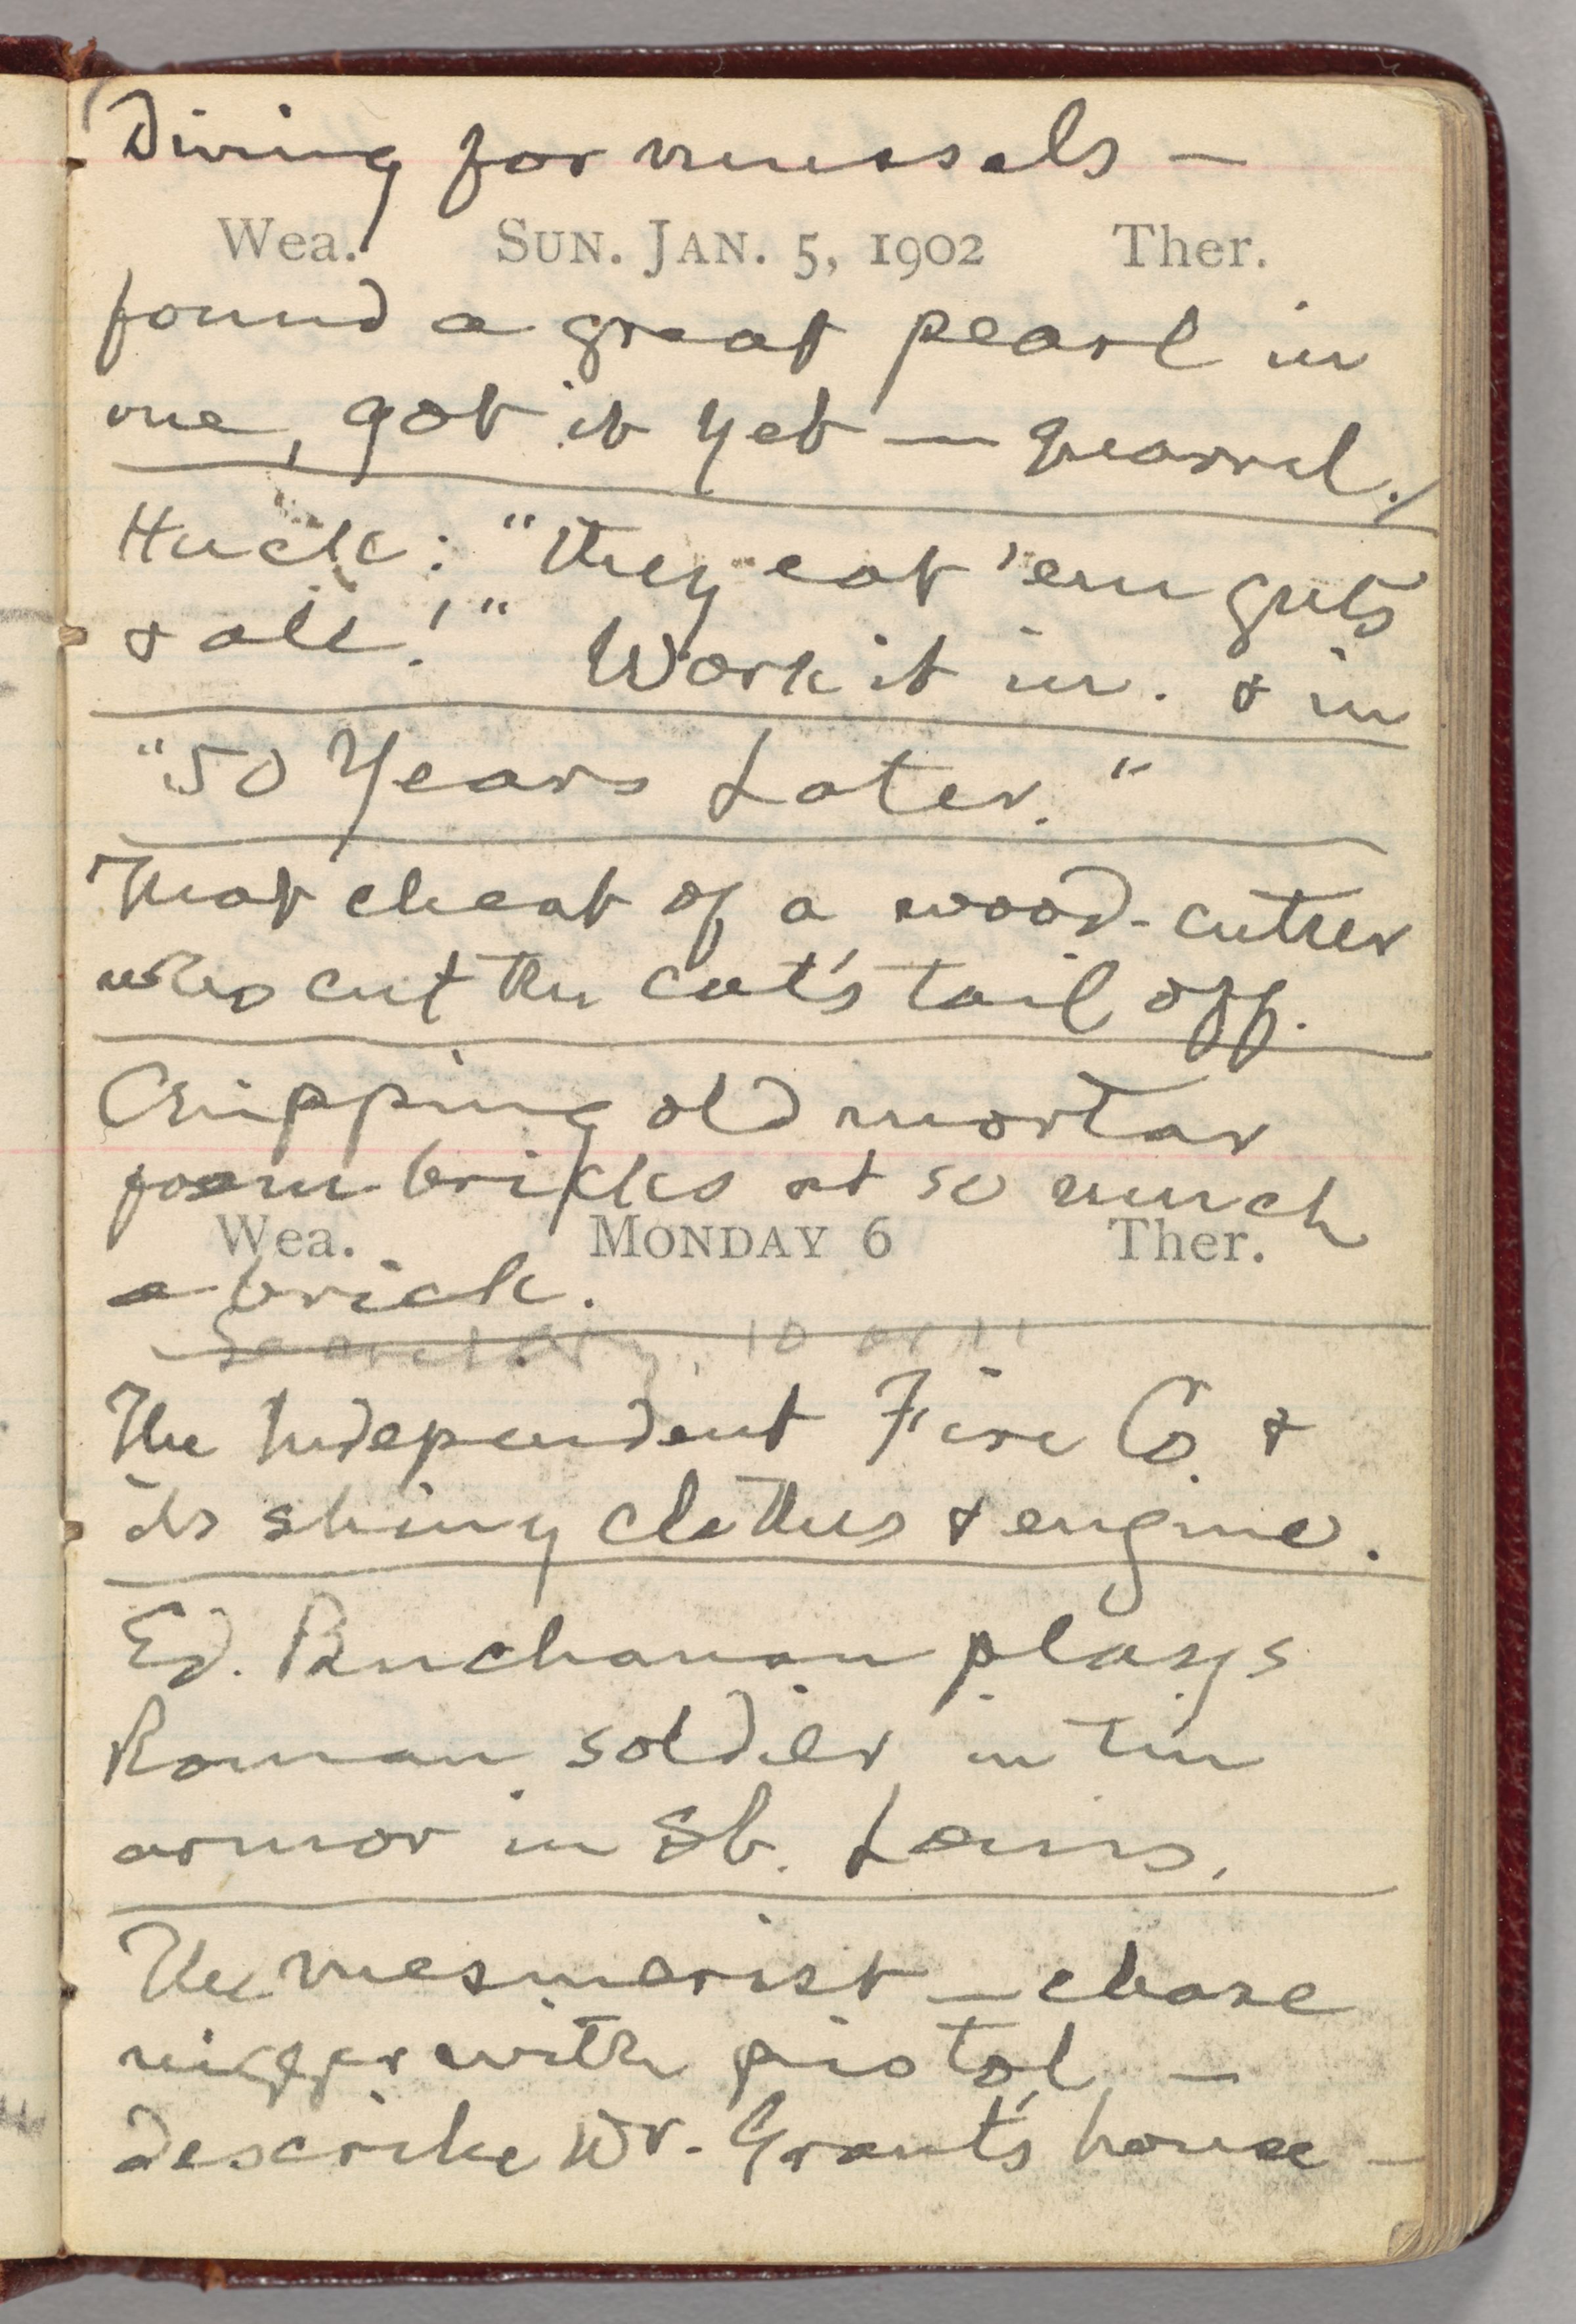 Diving for mussels —
Wea. SUN. JAN. 5, 1902 Ther.
found a great pearl in
one, got it yet — quarrel.
Huck: "They eat 'em guts
& all!" Work it in. & in
"50 Years Later."
That cheat of a wood-cutter
who cut the cat's tail off.
Chipping old mortar
from bricks at so much
Wea. MONDAY 6 Ther.
a brick.
10 or 11
The Independent Fire Co. &
its shiny clothes & engine.
Ed. Buchanan plays
Roman soldier in tin
armor in St. Louis.
The mesmerist — chase
nigger with pistol —
describe Dr. Grant's house —